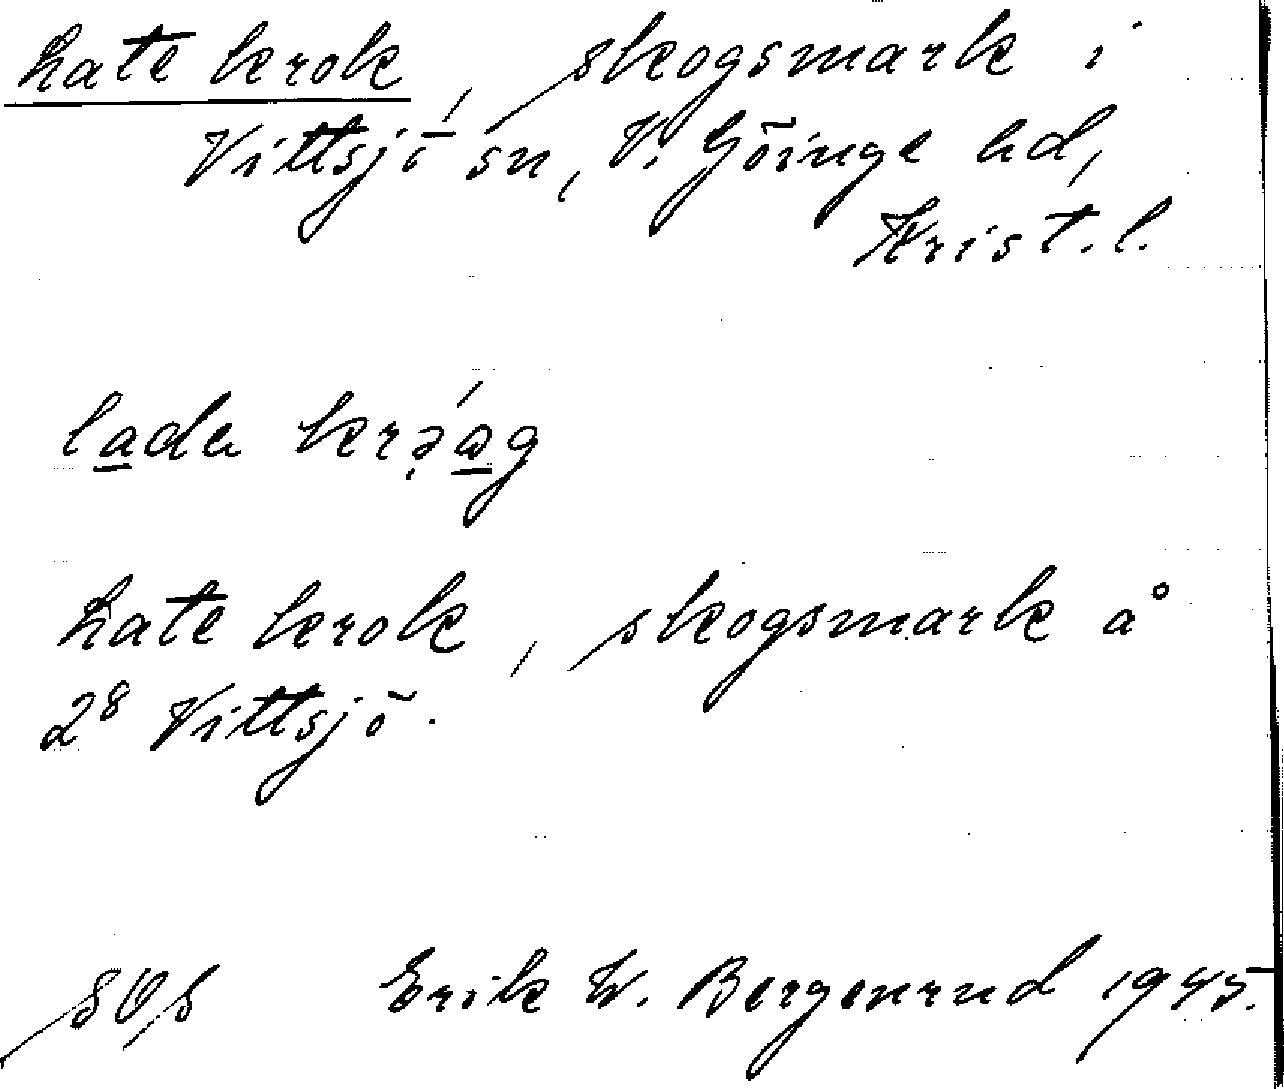 Late krok, skogsmark i
Vittsjö sn, V. Göinge hd,
Krist. l.
lada krə̣́ɷg
Late krok, skogsmark å
2⁸ Vittsjö.
Erik W. Bergenrud 1945.